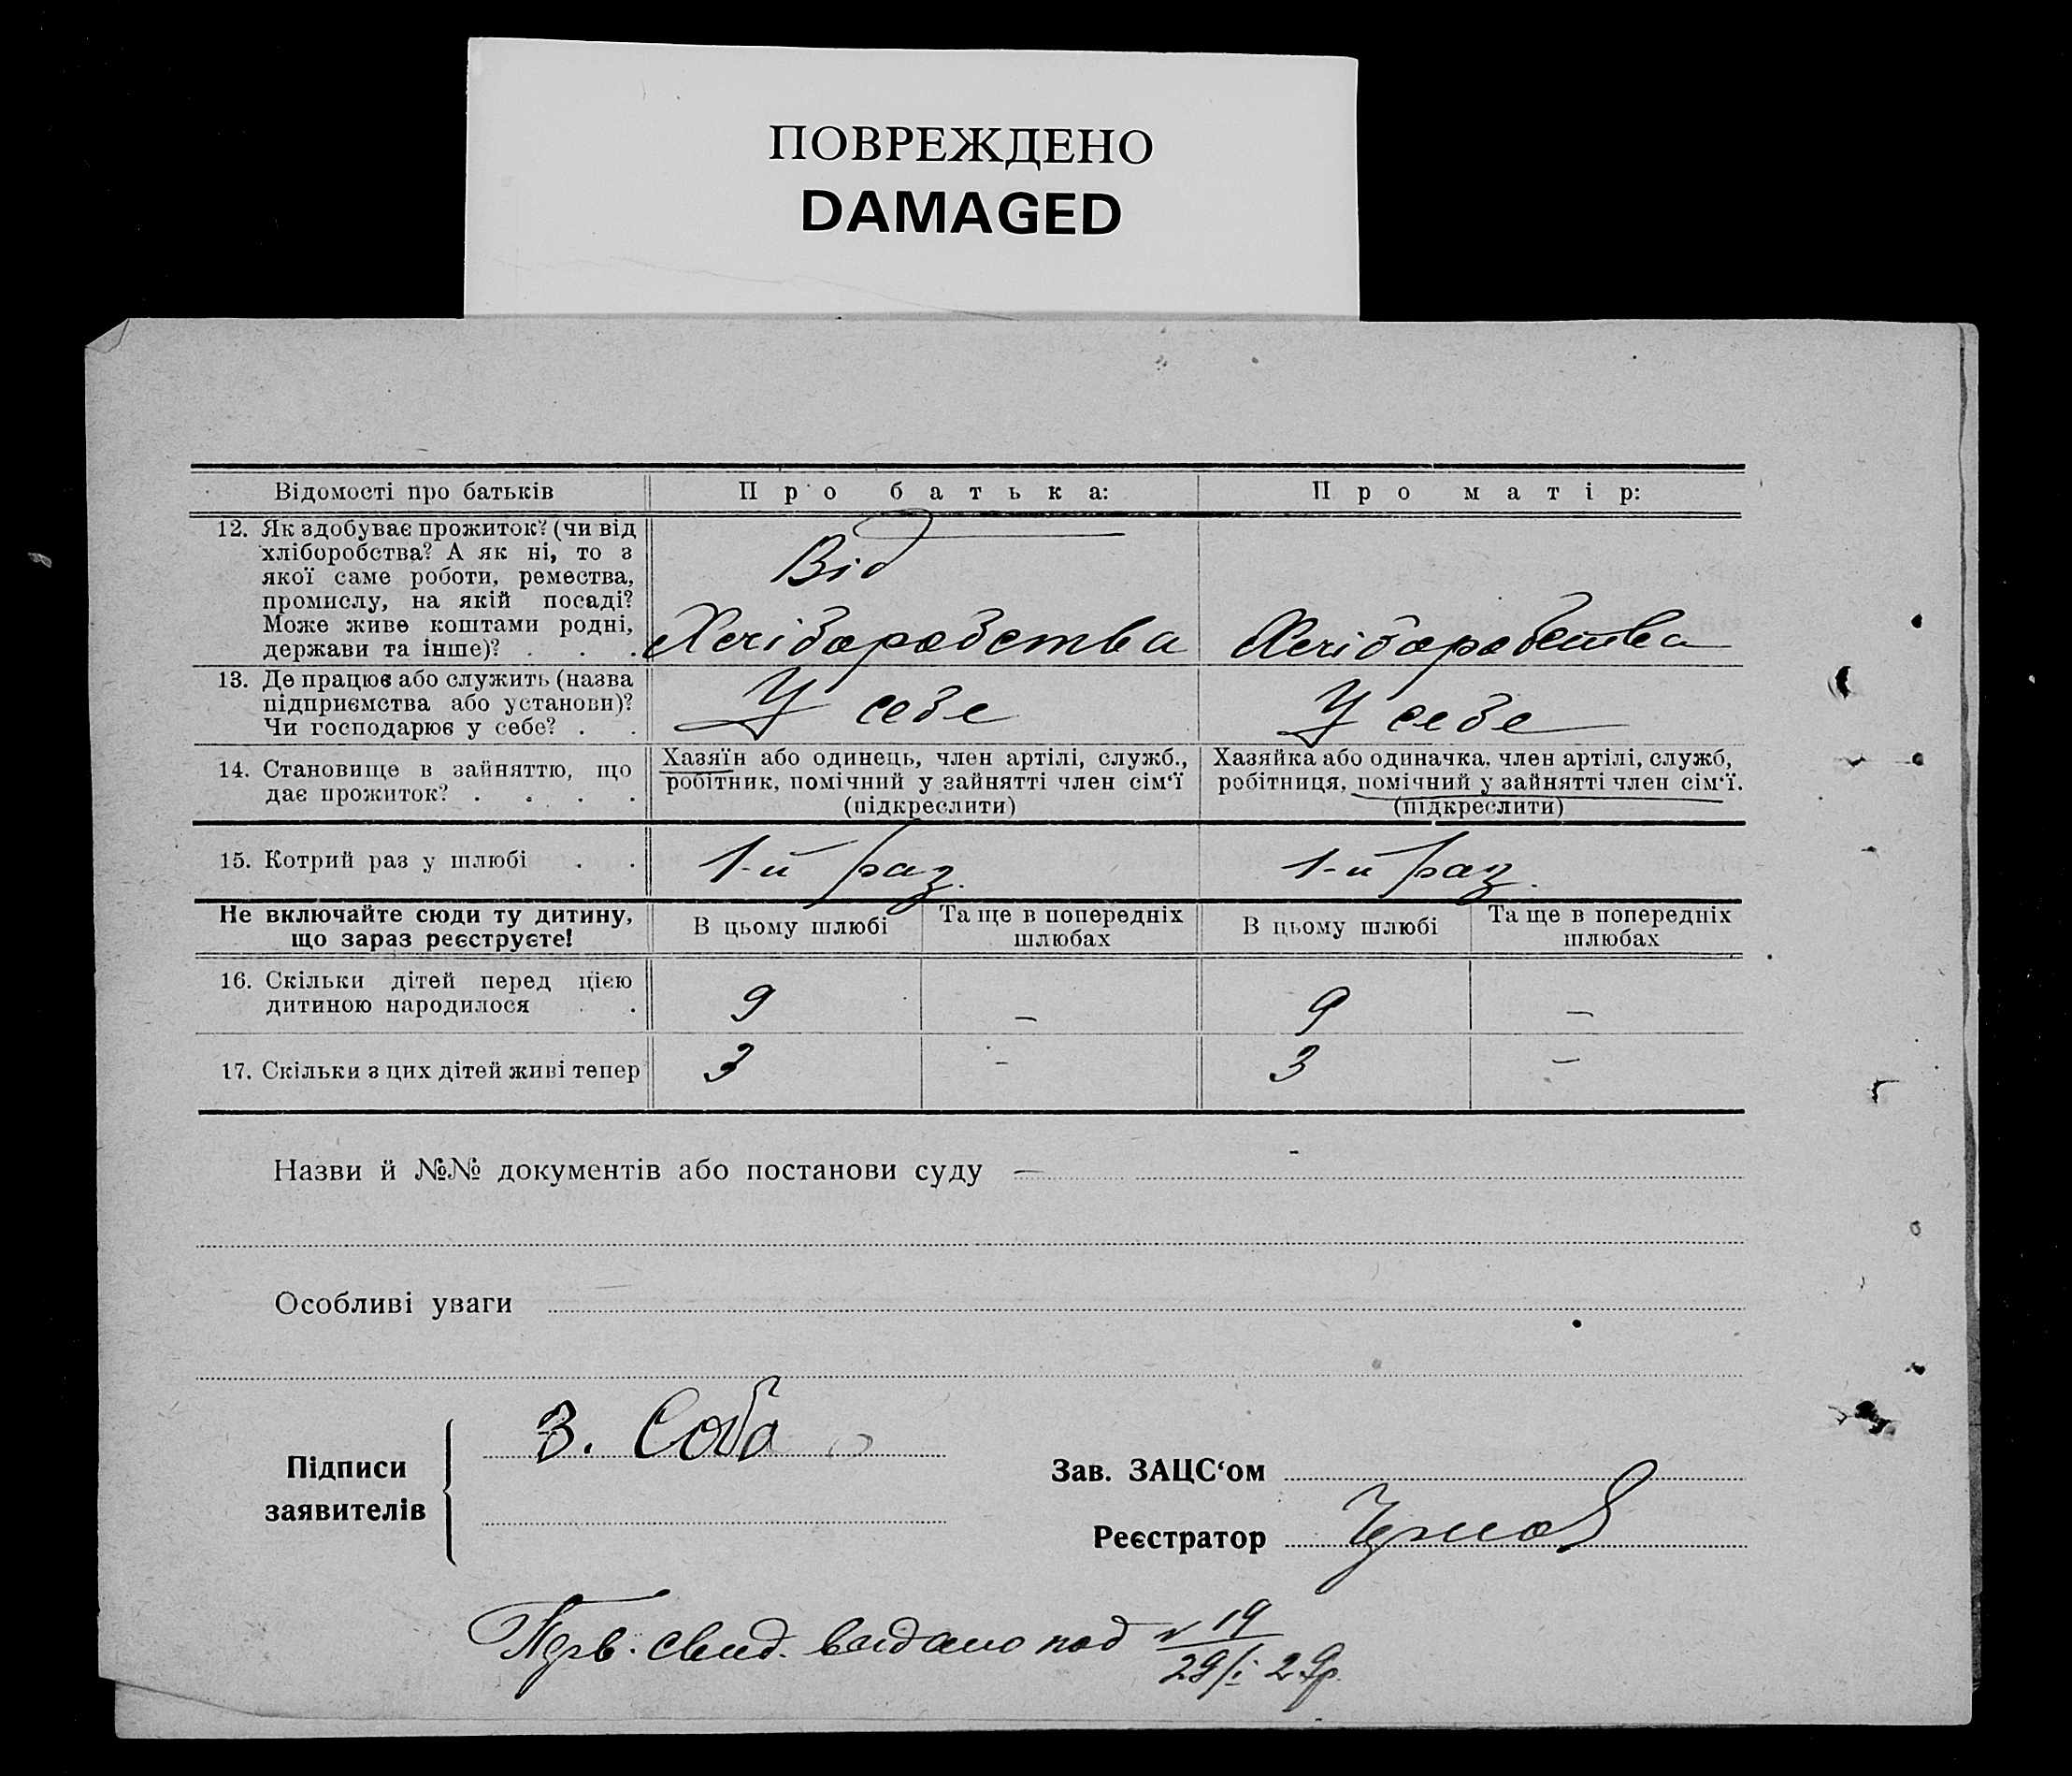 ПОВРЕЖДЕНО
DAMAGED
Відомості про батьків Про батька: Про матір:
12. Як здобуває прожиток? (чи від
хліборобства? А як ні, то з
якої саме роботи, ремества,
промислу, на якій посаді?
Може живе коштами родні,
держави та інше)? . . .
Від
Хліборобства Хліборобства
13. Де працює або служить (назва
підприємства або установи)?
Чи господарює у себе? . .
У себе У себе
14. Становище в зайняттю, що
дає прожиток? . . . .
Хазяїн або одинець, член артілі, служб.,
робітник, помічний у зайнятті член сім'ї
(підкреслити)
Хазяйка або одиначка, член артілі, служб,
робітниця, помічний у зайнятті член сім'ї.
(підкреслити)
15. Котрий раз у шлюбі . . 1-й раз. 1-й раз.
Не включайте сюди ту дитину,
що зараз реєструєте!
В цьому шлюбі Та ще в попередніх
шлюбах
В цьому шлюбі Та ще в попередніх
шлюбах
16. Скільки дітей перед цією
дитиною народилося . .
9 – 9 –
17. Скільки з цих дітей живі тепер 3 – 3 –
Назви й №№ документів або постанови суду —
Особливі уваги
Підписи
заявителів
З. Соба
Зав. ЗАЦС‘ом
Реєстратор
свид. видано под № 19
29/I 29р.